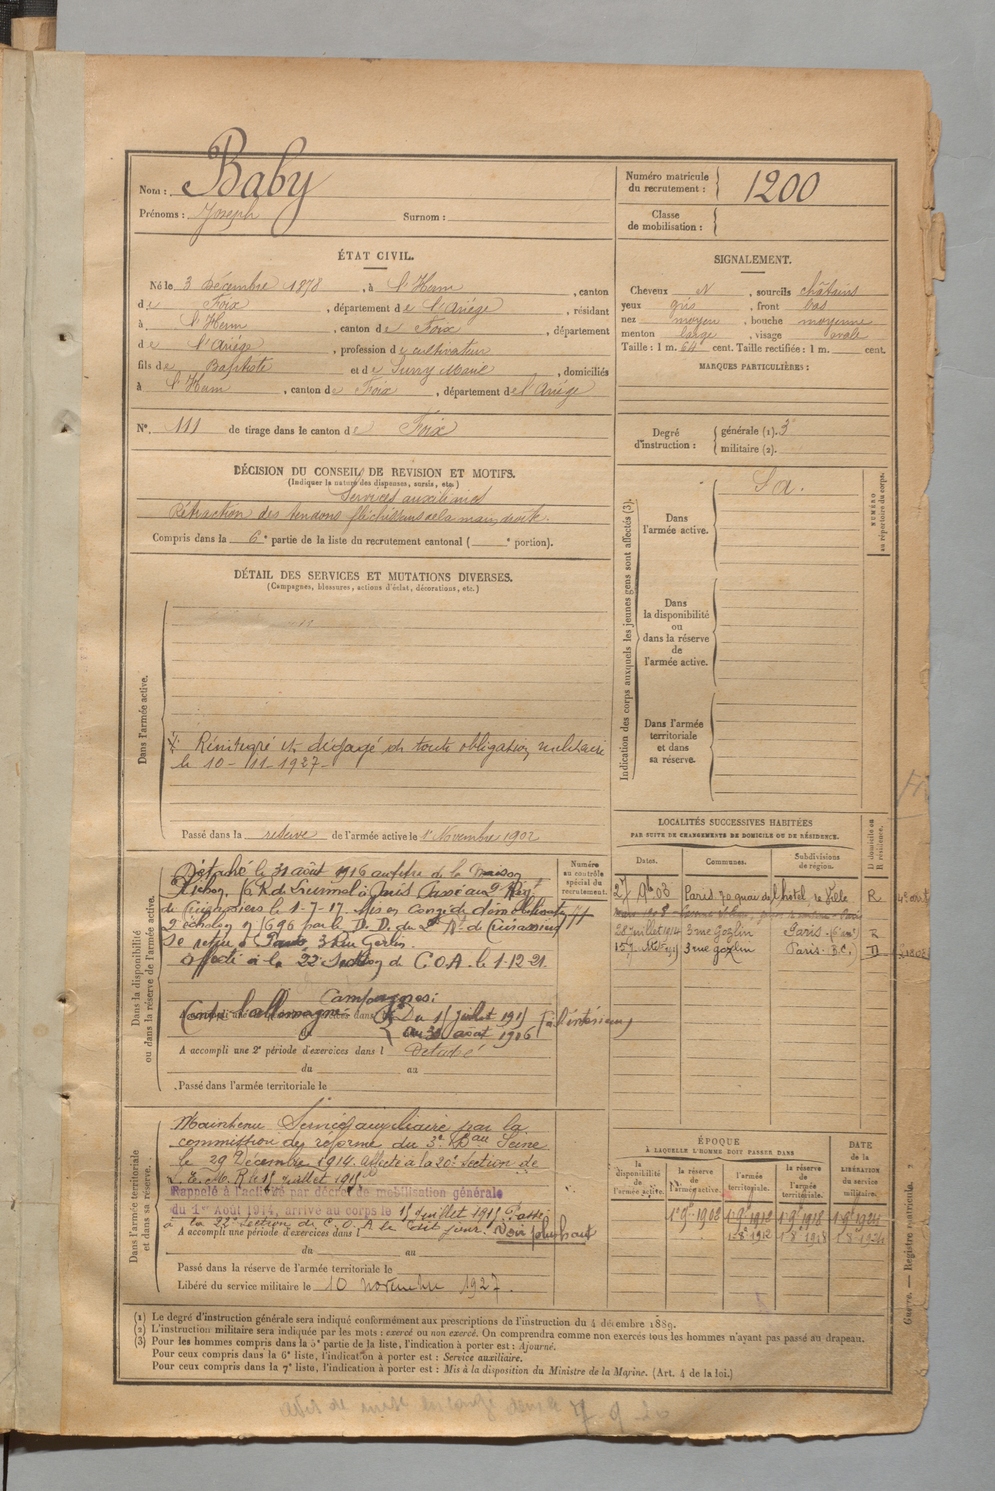 Nom : Baby
Prénoms : Joseph Surnom :
Numéro matricule du recrutement : 1200
Classe de mobilisation :
ÉTAT CIVIL.
Né le 3 Décembre 1878, à l'Herm, canton
de Foix, département de l'Ariége, résidant
à l'Herm, canton de Foix, département
de l'Ariége, profession de cultivateur
fils de Baptiste et de Surry Marie, domiciliés
à l'Herm, canton de Foix, département de l'Ariége
N°. 111 de tirage dans le canton de Foix
SIGNALEMENT.
Cheveux N, sourcils châtains
yeux gris, front bas
nez moyen, bouche moyenne
menton large, visage ovale
Taille : 1 m. 64 cent. Taille rectifiée : 1 m. cent.
MARQUES PARTICULIÈRES :
Degré d'instruction : générale (1). 3
militaire (2).
DÉCISION DU CONSEIL DE REVISION ET MOTIFS.
(Indiquer la nature des dispenses, sursis, etc.)
Services auxiliaires
Rétraction des tendons fléchisseurs de la main droite.
Compris dans la 6e partie de la liste du recrutement cantonal ( e portion).
DÉTAIL DES SERVICES ET MUTATIONS DIVERSES.
(Campagnes, blessures, actions d'éclat, décorations, etc.)
Dans l'armée active.
Réintégré et dégagé de toute obligation militaire
le 10-11-1927-
Passé dans la réserve de l'armée active le 1er Novembre 1902
Indication des corps auxquels les jeunes gens sont affectés (3).
Dans l'armée active.
S a.
Dans la disponibilité ou dans la réserve de l'armée active.
Dans l'armée territoriale et dans sa réserve.
NUMÉRO au répertoire du corps.
Dans la disponibilité ou dans la réserve de l'armée active.
Numéro au contrôle spécial du recrutement.
Détaché le 31 août 1916 au titre de la Maison
à Paris Passé au 2e Régt
de Cuirassiers le 1-7-17. Mis en Congé de démobilisation
2e échelon n° 1696 par le D. D. du 2e Rt de Cuirassiers
Se retire à Paris, 3 Rue
Affecté à la 22e Section de C.O.A. le 1-12-21.
Campagnes :
Contre l'allemagne Du 15 juillet 1915
au 30 août 1916 (à l'intérieur)
A accompli une 2e période d'exercices dans l Détaché
du au
Passé dans l'armée territoriale le
LOCALITÉS SUCCESSIVES HABITÉES
PAR SUITE DE CHANGEMENTS DE DOMICILE OU DE RÉSIDENCE.
Dates. Communes. Subdivisions de région. D domicile ou R résidence.
27 9b 03 Paris 70 quai de l'hôtel de Ville R
28 Juillet 1914 3 rue Gozlin Paris R
3 rue gozlin Paris. B.C. D
Dans l'armée territoriale et dans sa réserve.
Maintenu Service auxiliaire par la
commission de réforme du 3e Bau Seine
le 29 Décembre 1914. Affecté à la 20e Section de
S. E. M. R le 15 juillet 1915
Rappelé à l'activité par décret de mobilisation générale
du 1er Août 1914, arrivé au corps le 15 juillet 1915 Passé
à la 22e Section de C.O.A le dit jour. Voir plus haut
A accompli une période d'exercices dans l
du au
Passé dans la réserve de l'armée territoriale le
Libéré du service militaire le 10 novembre 1927.
ÉPOQUE
À LAQUELLE L'HOMME DOIT PASSER DANS
la disponibilité de l'armée active. la réserve de l'armée active. l'armée territoriale. la réserve de l'armée territoriale. DATE de la LIBÉRATION du service militaire.
1er 9b 1902 1er 9b 1912 1er 9b 1918 1er 9b 1924
1er 8b 1912 1er 8b 1918 1er 8b 1924
(1) Le degré d'instruction générale sera indiqué conformément aux prescriptions de l'instruction du 4 décembre 1889.
(2) L'instruction militaire sera indiquée par les mots : exercé ou non exercé. On comprendra comme non exercés tous les hommes n'ayant pas passé au drapeau.
(3) Pour les hommes compris dans la 5e partie de la liste, l'indication à porter est : Ajourné.
Pour ceux compris dans la 6e liste, l'indication à porter est : Service auxiliaire.
Pour ceux compris dans la 7e liste, l'indication à porter est : Mis à la disposition du Ministre de la Marine. (Art. 4 de la loi.)
Guerre. — Registre matricule.